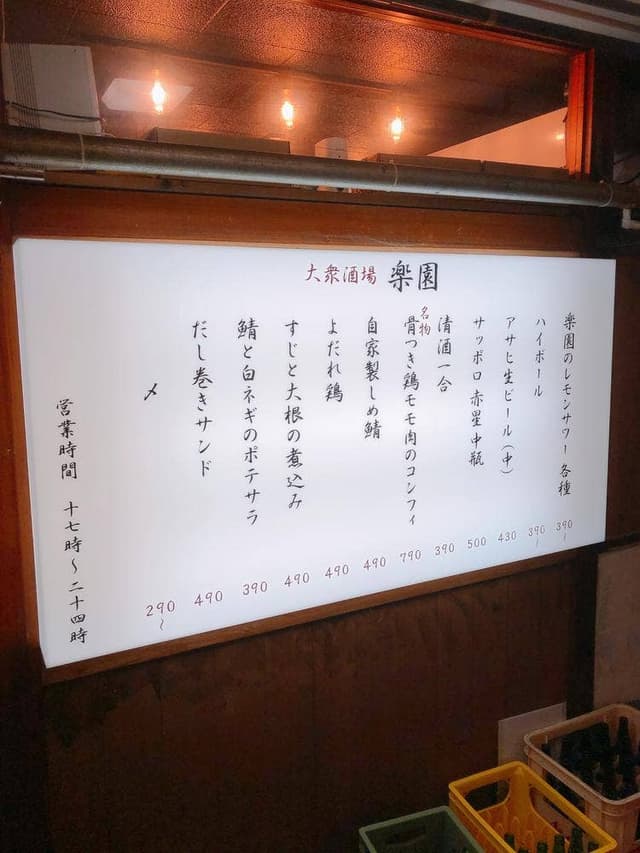 大衆酒場 楽園
楽園のレモンサワー 各種 390〜
ハイボール 390〜
アサヒ生ビール(中) 430
サッポロ赤星中瓶 500
清酒一合 390〜
名物
骨つき鶏モモ肉のコンフィ 790
自家製しめ鯖 490
よだれ鶏 490
すじと大根の煮込み 490
鯖と白ネギのポテサラ 390
だし巻きサンド 490
〆 290〜
営業時間 十七時〜二十四時